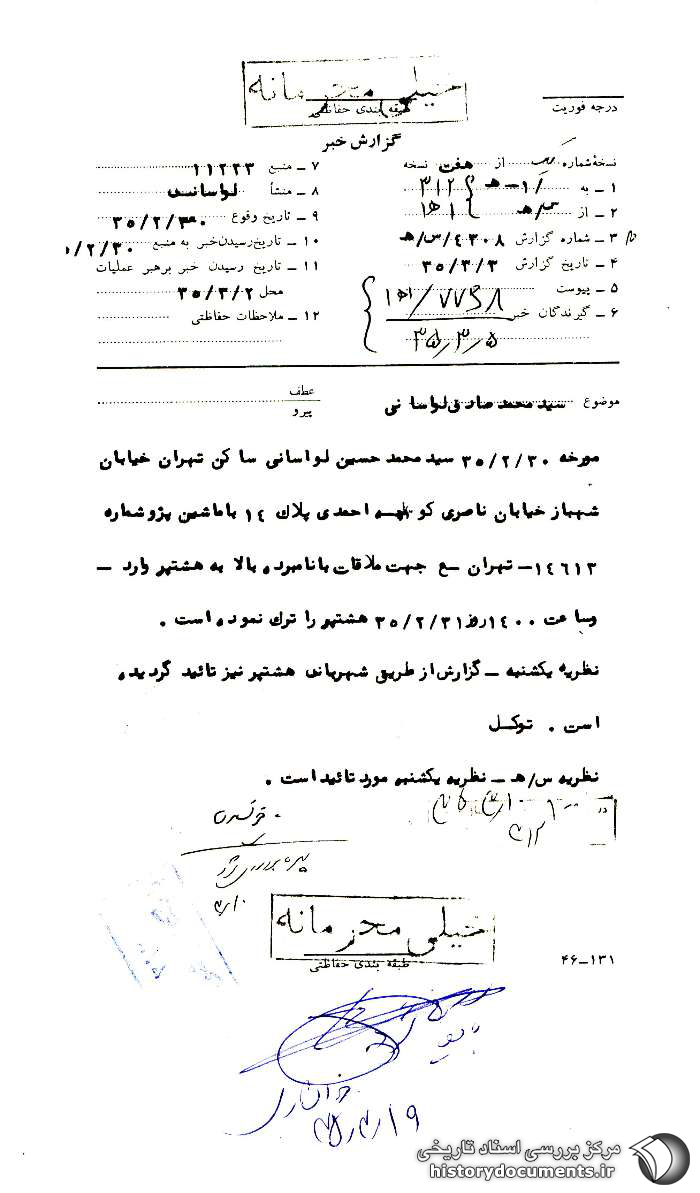 خیلی محرمانه
طبقه بندی حفاظتی
درجه فوریت
گزارش خبر
نسخهٔ شماره یک از هفت نسخه
۱ ـ به ۳۱۲
۲ ـ از س/هـ ۱ه۱
۳ ـ شماره گزارش ۴۳۰۸/س/هـ
۴ ـ تاریخ گزارش ۳۵/۳/۳
۵ ـ پیوست
۶ ـ گیرندگان خبر
۳۵/۳/۵
۷ ـ منبع ۱۱۲۲۳
۸ ـ منشأ لواسانی
۹ ـ تاریخ وقوع ۳۵/۲/۳۰
۱۰ ـ تاریخ رسیدن خبر به منبع ۵/۲/۳۰
۱۱ ـ تاریخ رسیدن خبر برهبر عملیات
محل ۳۵/۳/۲
۱۲ ـ ملاحظات حفاظتی
موضوع سید محمد صادق لواسانی
عطف
پیرو
مورخه ۳۵/۲/۳۰ سید محمد حسین لواسانی ساکن تهران خیابان
شهباز خیابان ناصری کوچه احمدی پلاک ۱۴ باماشین پژو شماره
۱۴۶۱۳ ـ تهران ـ ع جهت ملاقات با نامبرده بالا به هشتپر وارد ـ
وساعت ۱۴۰۰ روز ۳۵/۲/۳۱ هشتپر را ترک نموده است .
نظریه یکشنبه ـ گزارش از طریق شهربانی هشتپر نیز تائید گردیده
است . توکل
نظریه س/هـ ـ نظریه یکشنبه مورد تائید است .
خیلی محرمانه
طبقه بندی حفاظتی
۴۶-۱۳۱
بایگانی
مرکز بررسی اسناد تاریخی
historydocuments.ir